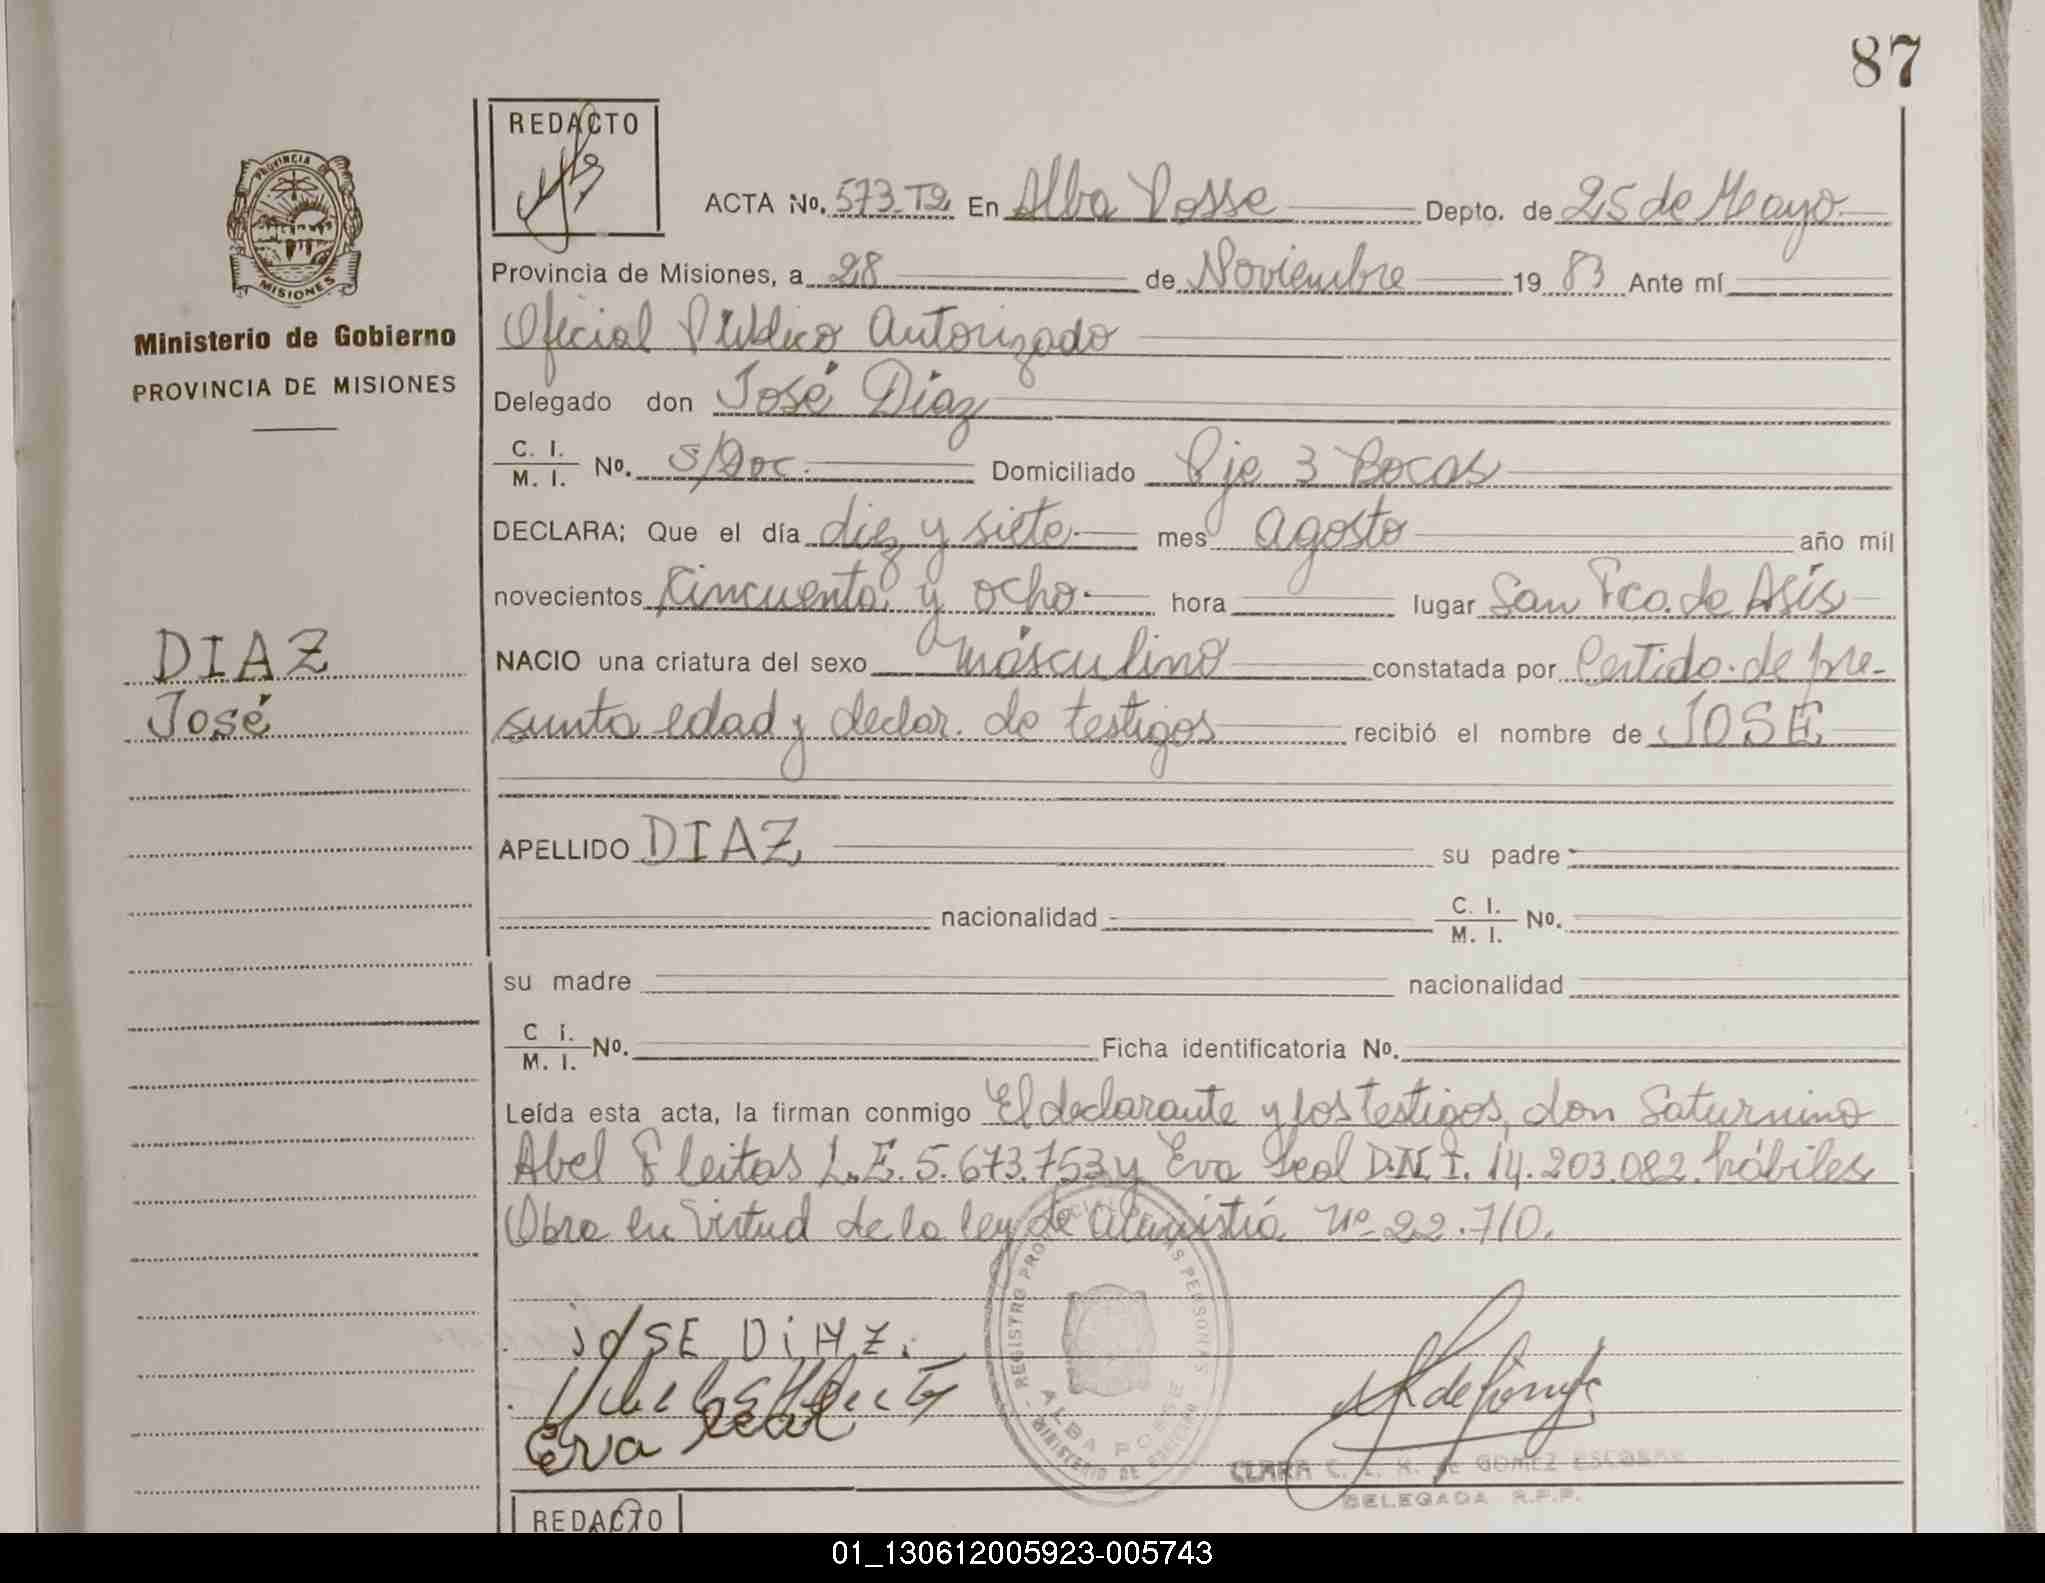 87
REDACTO
ACTA No. 573-T2 En Alba Posse Depto. de 25 de Mayo
Provincia de Misiones, a 28 de Noviembre 19 83 Ante mí
Oficial Público Autorizado
Delegado don José Díaz
C. I. / M. I. No. S/Doc. Domiciliado Pje 3 Bocas
DECLARA; Que el día diez y siete mes agosto año mil
novecientos Cincuenta y ocho hora lugar San Fco. de Asís
NACIO una criatura del sexo másculino constatada por Certido. de pre-
sunta edad y declar. de testigos recibió el nombre de JOSE
APELLIDO DIAZ su padre
nacionalidad C. I. / M. I. No.
su madre nacionalidad
C I. / M. I. No. Ficha identificatoria No.
Leída esta acta, la firman conmigo El declarante y los testigos, don Saturnino
Abel Fleitas L.E. 5.673.753 y Eva Leal D.N.I. 14.203.082. hábiles
Obra en virtud de la ley de Amnistiá Nº 22.710.
JOSE DiAZ.
Eva Leal
REGISTRO PROVINCIAL DE LAS PERSONAS
ALBA POSSE
MINISTERIO DE GOBIERNO
CLARA C. L. K. de GOMEZ ESCOBAR
DELEGADA R.P.P.
PROVINCIA DE
MISIONES
Ministerio de Gobierno
PROVINCIA DE MISIONES
DIAZ
José
REDACTO
01_130612005923-005743